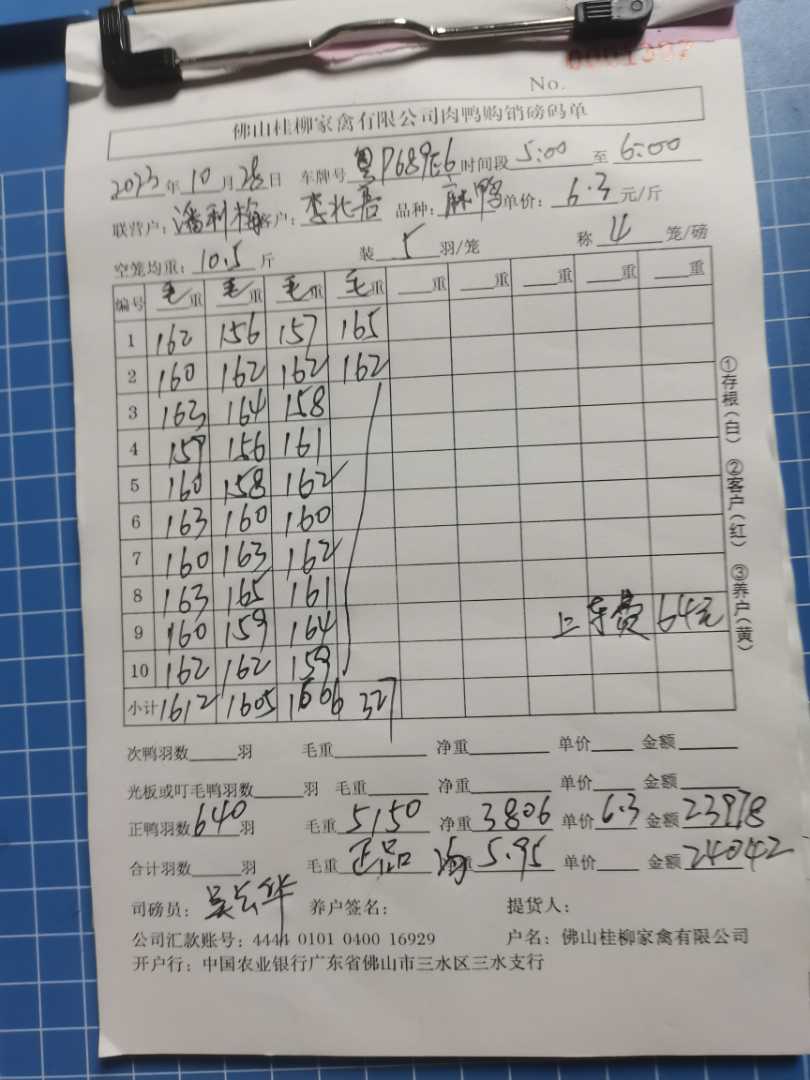 No. 0001397
佛山桂柳家禽有限公司肉鸭购销磅码单
2023年10月28日 车牌号粤P689E6时间段5:00至6:00
联营户:潘利梅客户:李兆 品种:麻鸭单价:6.3元/斤
空笼均重:10.5斤 装5羽/笼 称4笼/磅
编号 毛重 毛重 毛重 毛重 重 重 重 重 重
1 162 156 157 165
2 160 162 162 162
3 163 164 158
4 159 156 161
5 160 158 162
6 163 160 160
7 160 163 162
8 163 165 161
9 160 159 164 上车费64元
10 162 162 159
小计 1612 1605 1606 327
次鸭羽数 羽 毛重 净重 单价 金额
光板或叮毛鸭羽数 羽 毛重 净重 单价 金额
正鸭羽数640羽 毛重5150 净重3806 单价6.3 金额23978
合计羽数 羽 毛重 正品 净重5.95 单价 金额24042
司磅员:吴云华 养户签名: 提货人:
公司汇款账号:4444 0101 0400 16929 户名:佛山桂柳家禽有限公司
开户行:中国农业银行广东省佛山市三水区三水支行
①存根(白) ②客户(红) ③养户(黄)